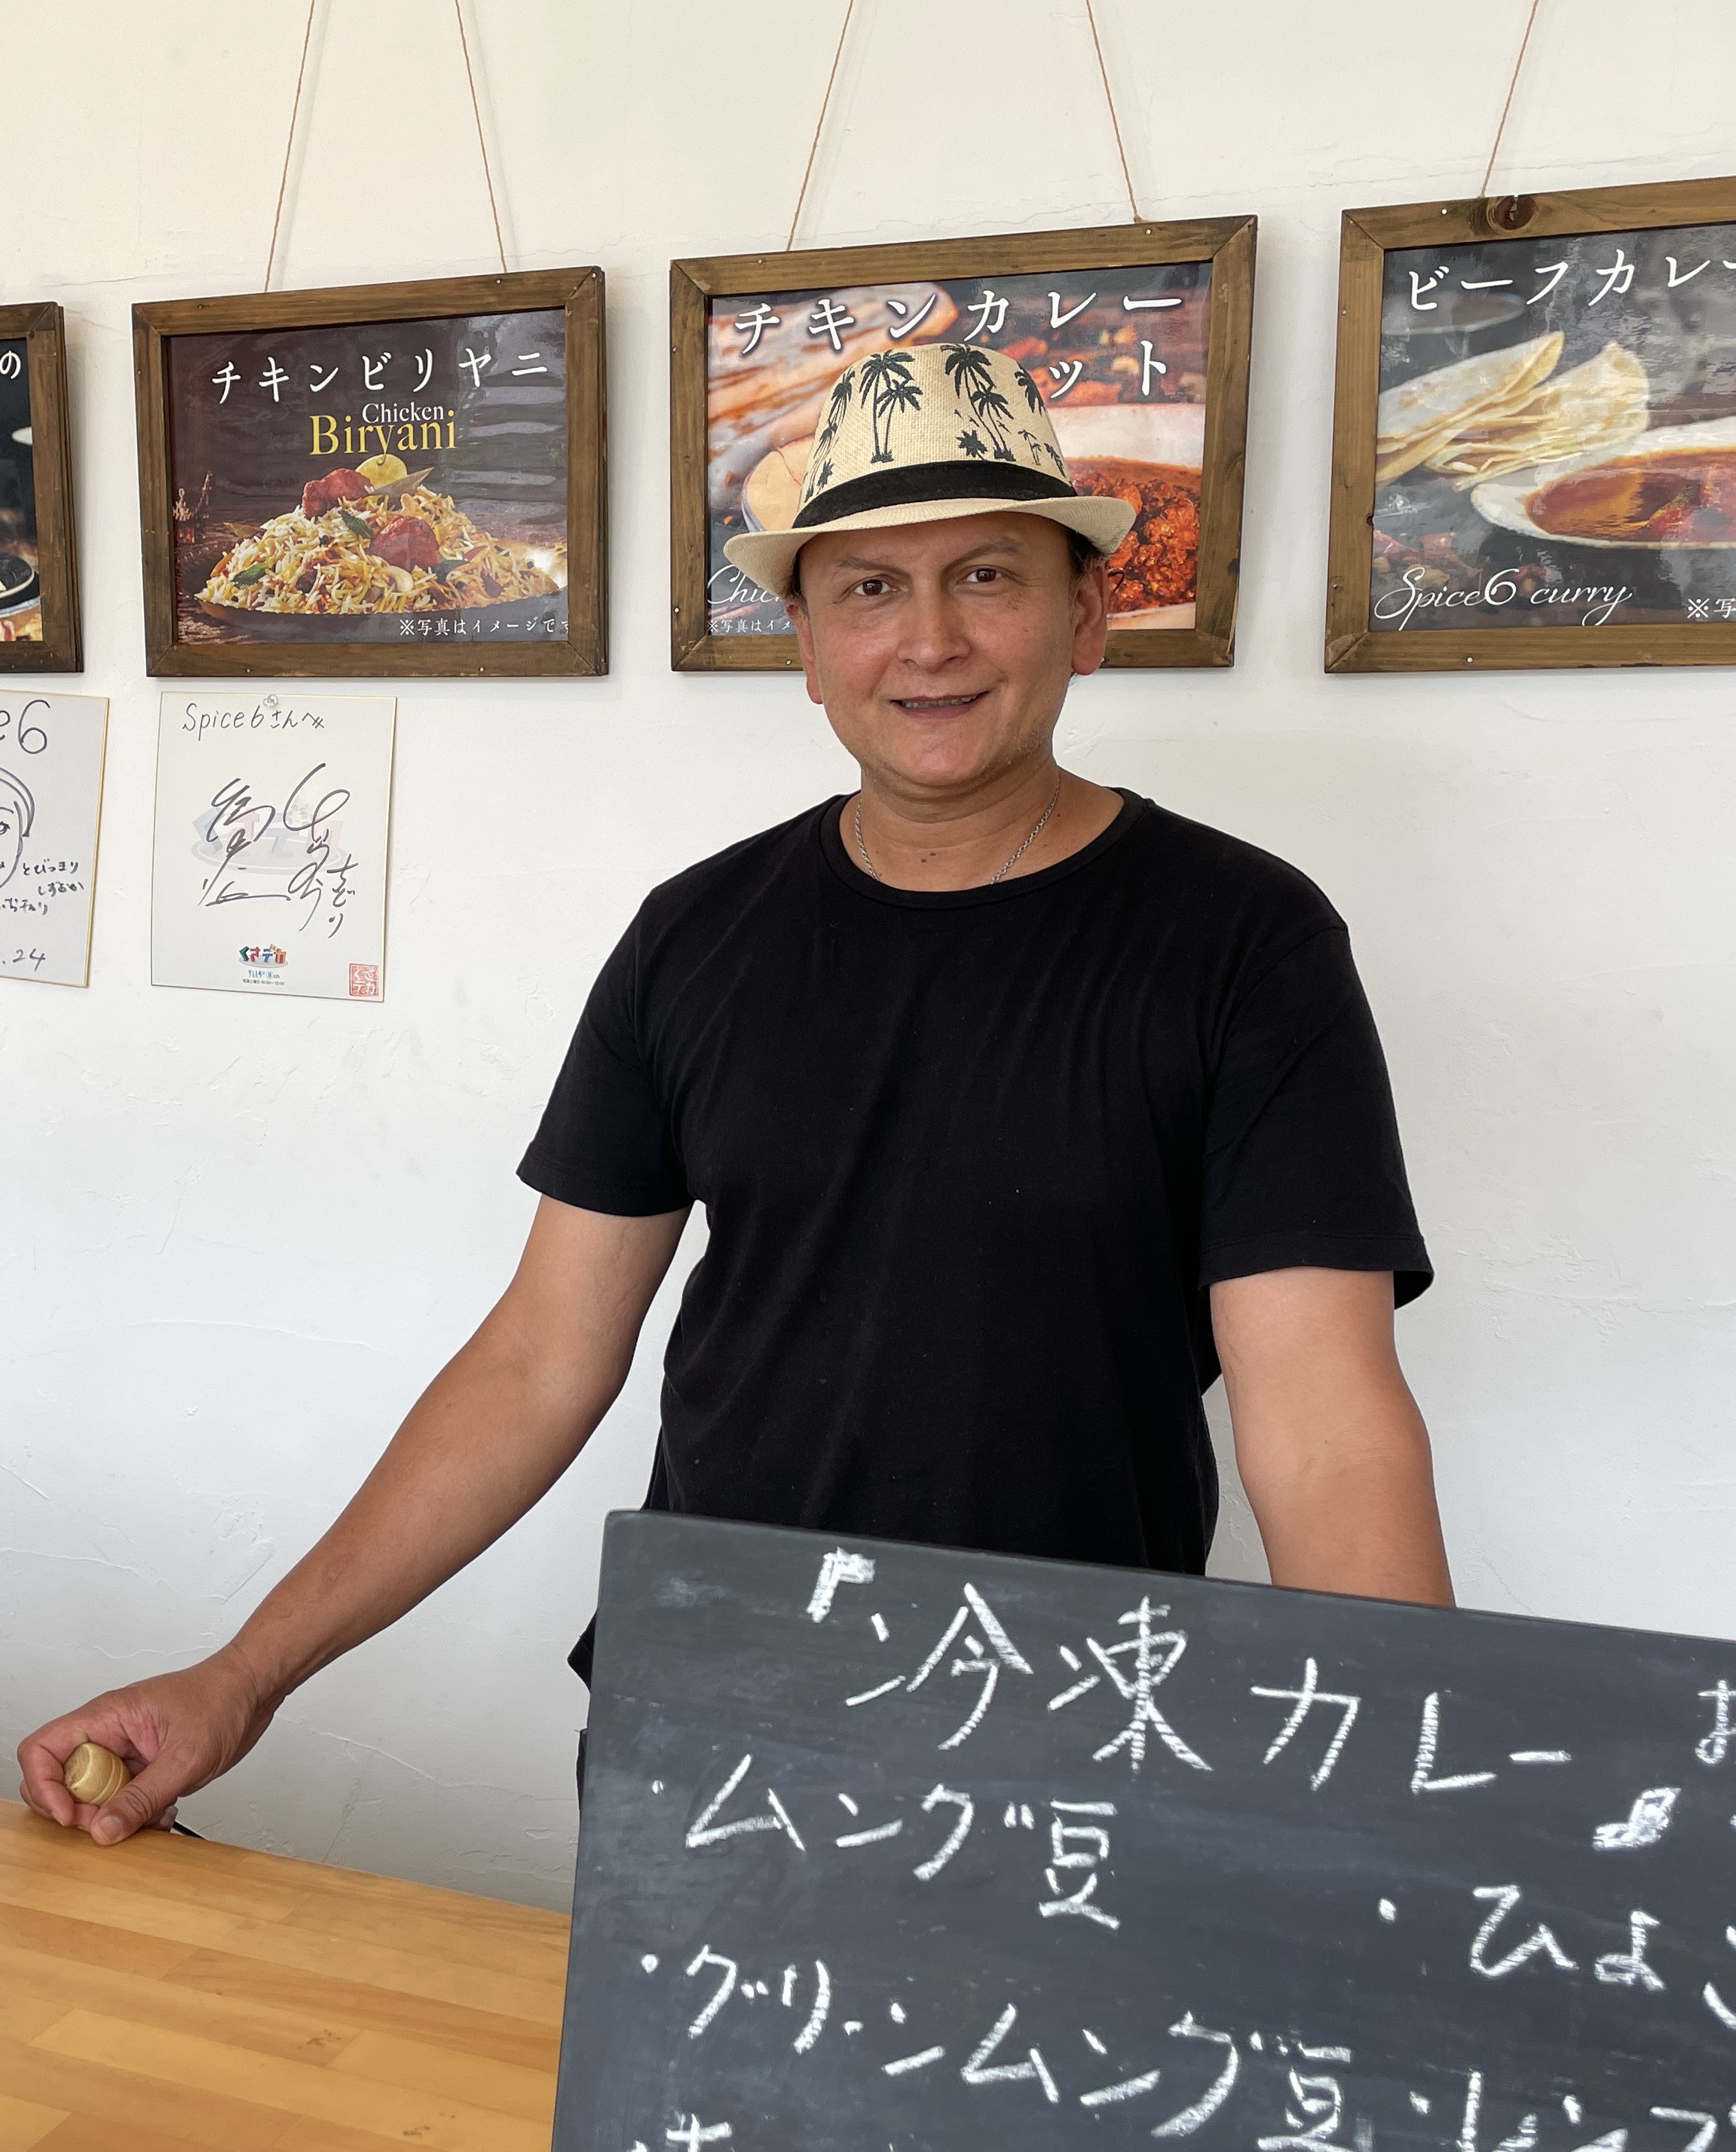 の
チキンビリヤニ
Chicken
Biryani
※写真はイメージです
チキンカレー
ット
※写真はイメ
ビーフカレー
Spice6 curry
※写
e6
とびっきり
しずおか
.24
Spice6さんへ
くさデカ
『冷凍カレー
・ムング豆
・ひよ
・グリーンムング豆・レンズ